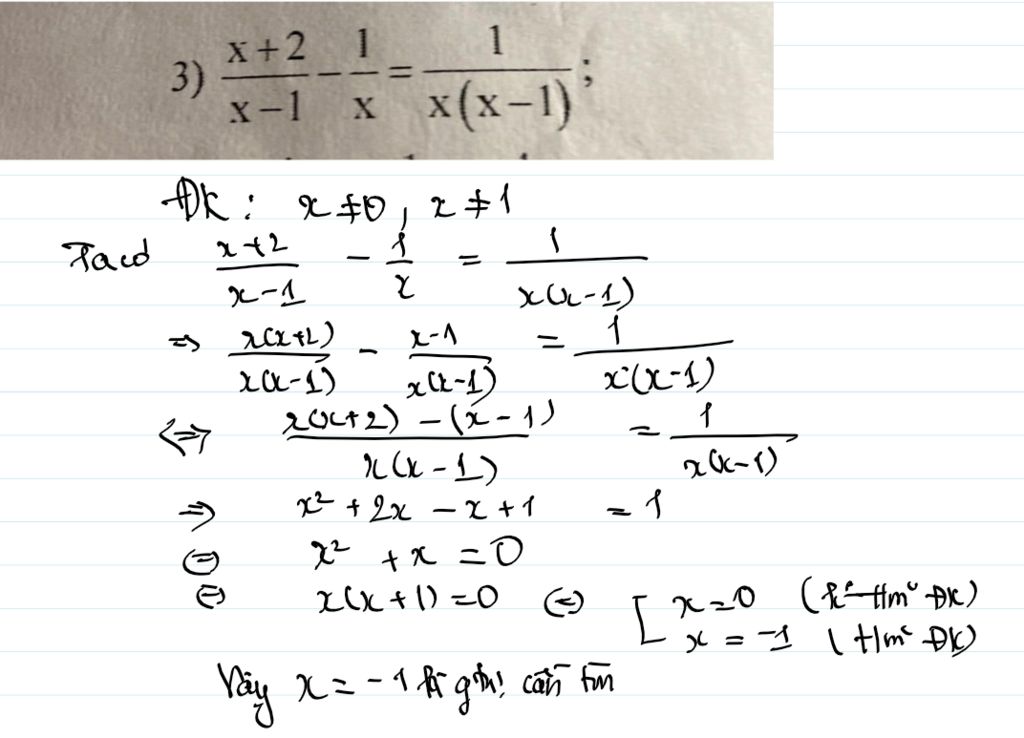 3) \frac{x+2}{x-1} - \frac{1}{x} = \frac{1}{x(x-1)};
ĐK: x ≠ 0, x ≠ 1
Ta có \frac{x+2}{x-1} - \frac{1}{x} = \frac{1}{x(x-1)}
⇒ \frac{x(x+2)}{x(x-1)} - \frac{x-1}{x(x-1)} = \frac{1}{x(x-1)}
⇔ \frac{x(x+2) - (x-1)}{x(x-1)} = \frac{1}{x(x-1)}
⇒ x² + 2x - x + 1 = 1
⇔ x² + x = 0
⇔ x(x+1) = 0 ⇔ [ x = 0 (k° t/m ĐK)
x = -1 (t/m ĐK)
Vậy x = -1 là gtri cần tìm